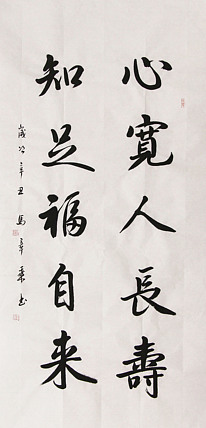 心寬人長壽
知足福自来
歲次辛丑馬章乘书